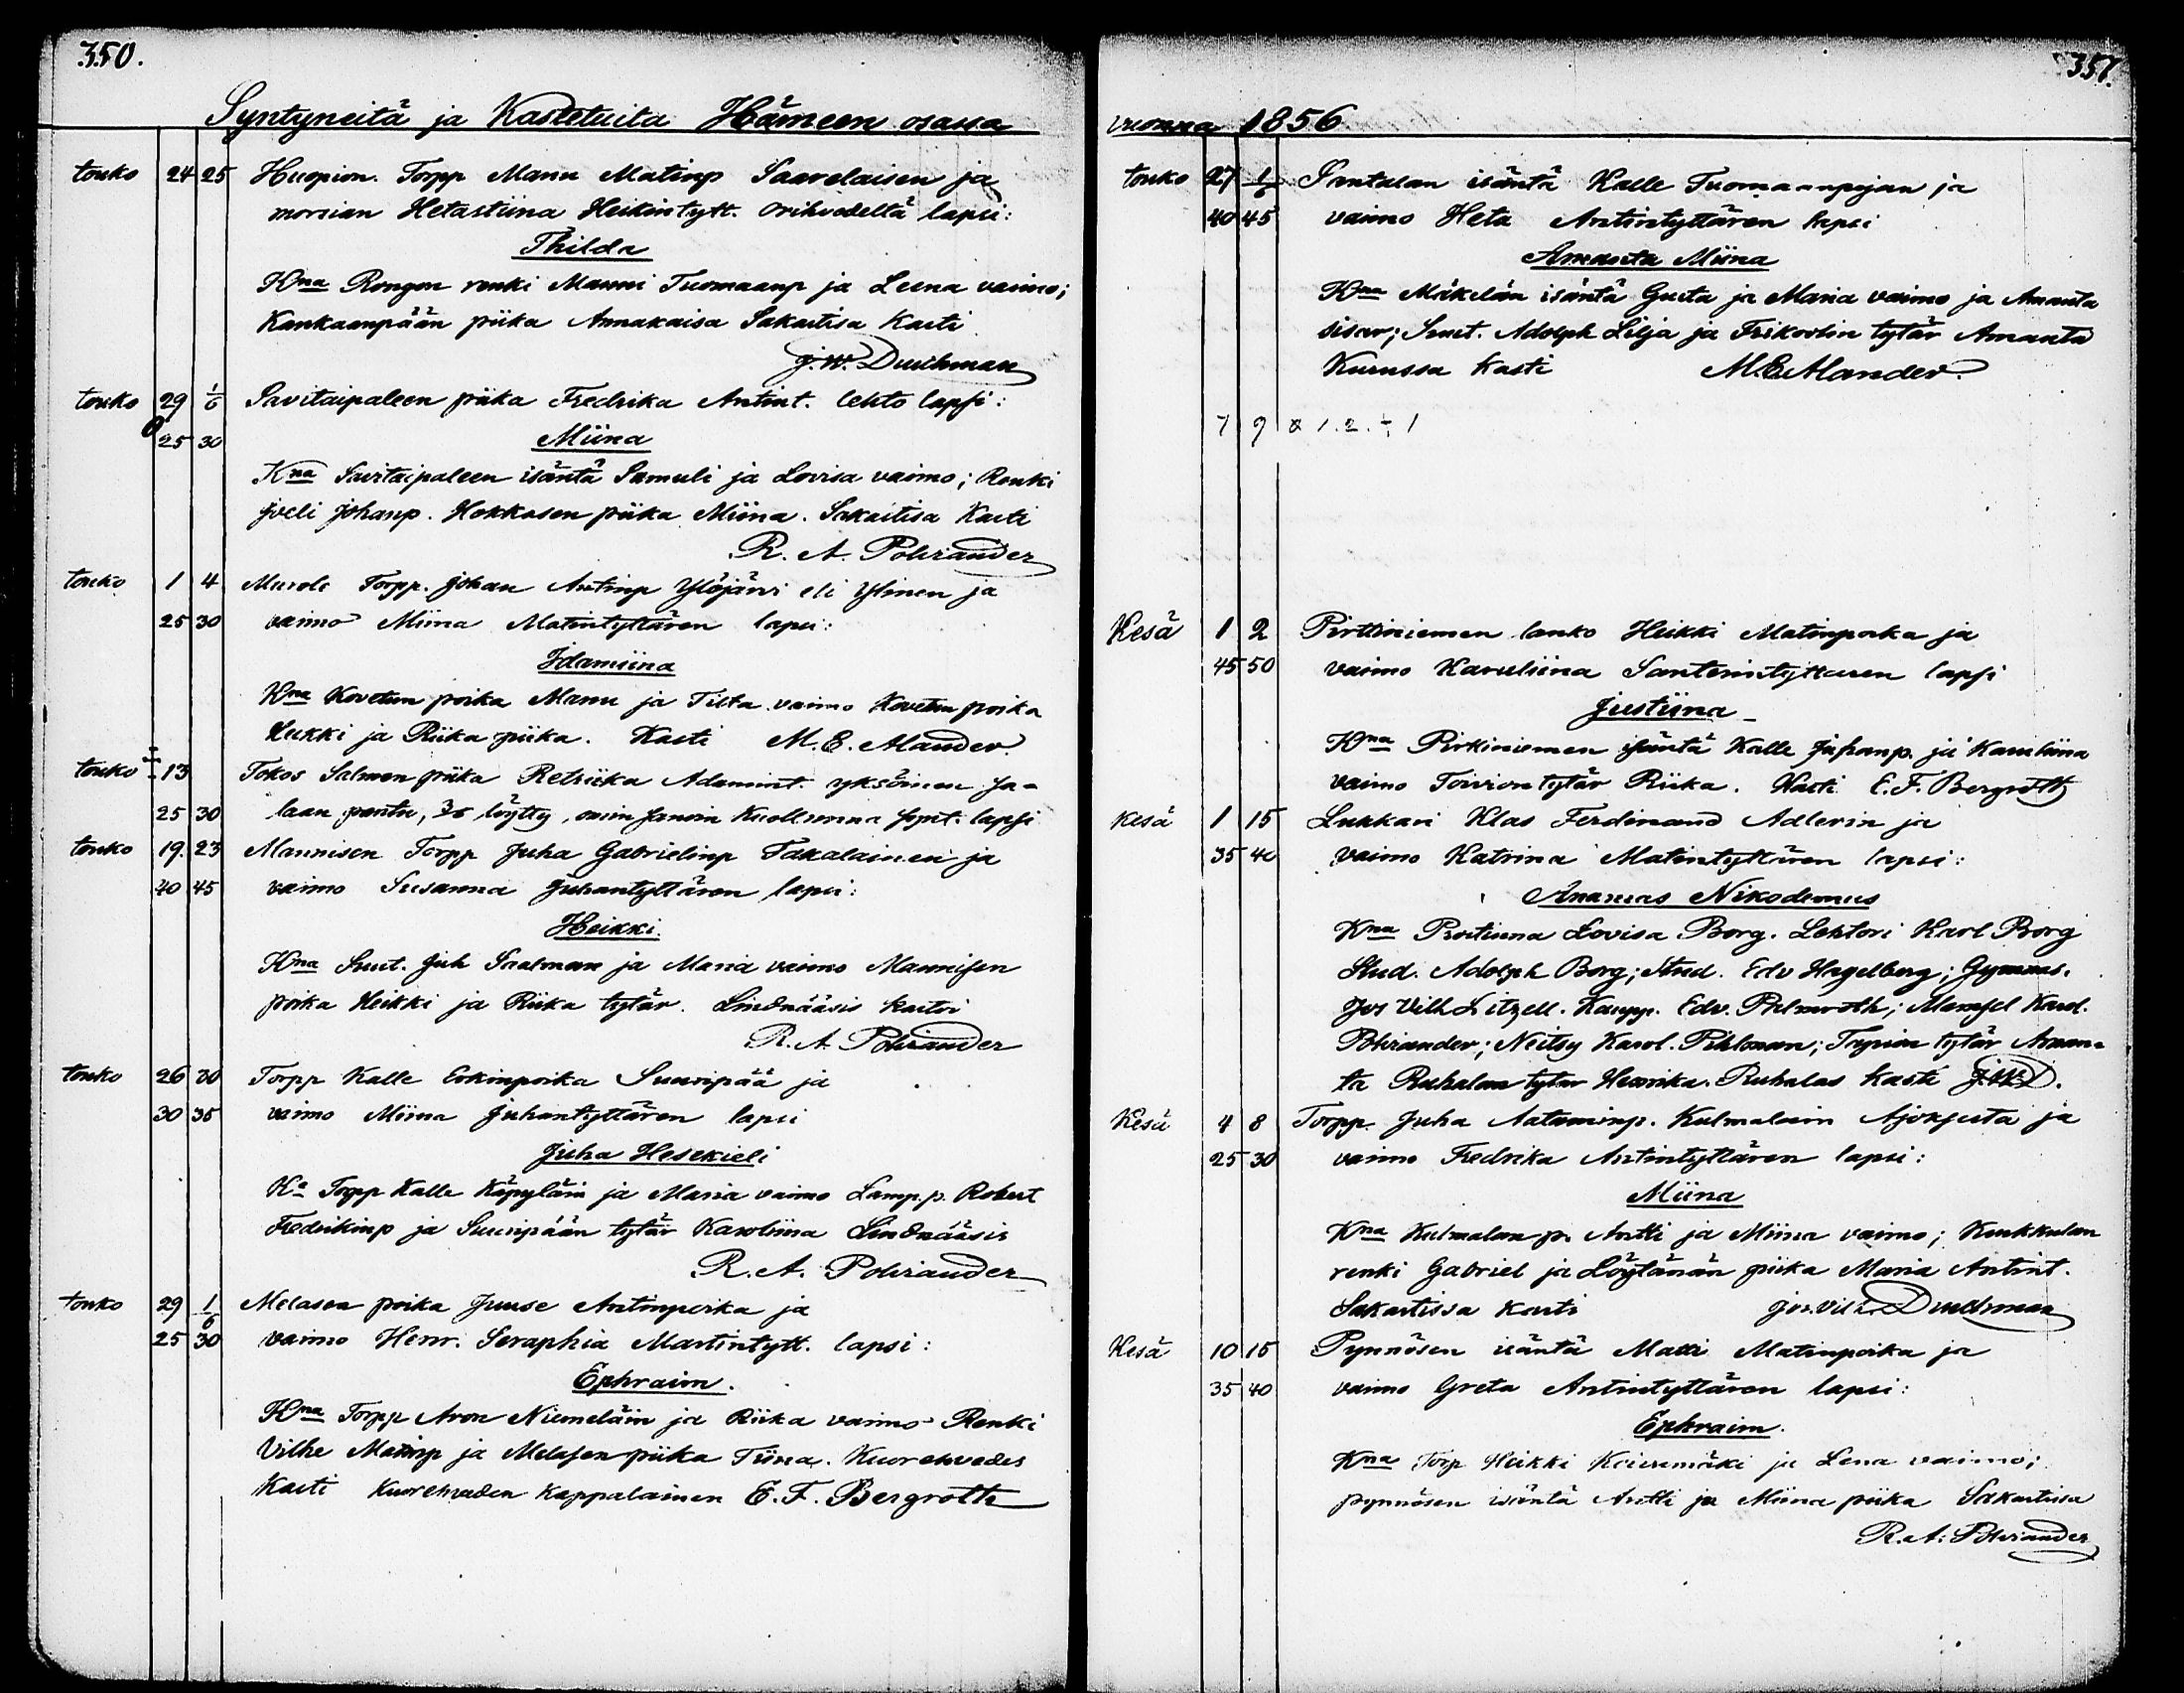 350.
Syntyneitä ja Kastetuita Hämeen osassa
touko 24 25 Huopion. Torpp Manu Matinp Saarelaisen ja
morsian Hetastiina Heikintytt. Orihvedeltä lapsi:
Thilda
Kna Rongon renki Manni Tuomaanp ja Leena vaimo;
Kankaanpään piika Annakaisa Sakastisa Kasti
J. W. Durchman
touko 29 1/6 Savitaipaleen piika Fredrika Antint. lehto lapsi:
25 30 Miina
Kna Savitaipaleen isäntä Samuli ja Lovisa vaimo; Renki
Joeli Johanp. Hokkasen piika Miina. Sakastisa Kasti
R. A. Polviander
touko 1 4 Murole Torpp. Johan Antinp Ylöjärvi eli Ylinen ja
25 30 vaimo Miina Matintyttären lapsi:
Idamiina
Kna Kovetun poika Manu ja Tilta vaimo Kovetun poika
Heikki ja Riika piika. Kasti M. E. Alander.
touko 13 Tokos Salmen piika Retriika Adamint. yksöinen ja-
25 30 laan pantu, löytty, lapsi
touko 19. 23 Mannisen Torpp Juha Gabrielinp Takalainen ja
40 45 vaimo Susanna Juhantyttären lapsi:
Heikki.
Kna Juh Saalman ja Maria vaimo Mannisen
poika Heikki ja Riika tytär. Lindnääsis kastoi
R. A. Polviander
touko 26 30 Torpp Kalle Erkinpoika Suuripää ja
30 35 vaimo Miina Juhantyttären lapsi
Juha Hesekieli
Ka Torpp Kalle Käpyläin ja Maria vaimo Lamp.p. Robert
Fredrikinp ja Suuripään tytär Karoliina Lindnääsis
R. A. Polviander
touko 29 1/6 Melasen poika Juuse Antinpoika ja
25 30 vaimo Henr. Seraphia Martintytt. lapsi:
Ephraim.
Kna Torpp Aron Niemeläin ja Riika vaimo Renki
Vilhe Matinp ja Melasen piika Tiina. Kuorehvedes
Kasti Kuorehveden Kappalainen E. F. Bergroth
351.
vuonna 1856
touko 27 1/6 Santalan isäntä Kalle Tuomaanpojan ja
40 45 vaimo Heta Antintyttären lapsi
Amanta Miina
Kna Mäkelän isäntä Gusta ja Maria vaimo ja Amanta
sisar; Adolph Lilja ja tytär Amanta
Kurussa Kasti M. E. Alander.
7 9
Kesä 1 2 Pirttiniemen lanko Heikki Matinpoika ja
45 50 vaimo Karuliina Santerintyttären lapsi
Justiina
Kna Pirttiniemen isäntä Kalle Juhanp. ja Karuliina
vaimo Toivion tytär Riika. Kasti E. F. Bergroth
Kesä 1 15 Lukkari Klas Ferdinand Adlerin ja
35 40 vaimo Katrina Matintyttären lapsi:
Ananias Nikodemus
Kna Lovisa Borg. Lehtori Karl Borg
Stud. Adolph Borg; Stud. Edv Hagelberg; Gymnas.
Jos Vilh Litzell. Kaupp. Edv. Palmroth; Mamsel Karol.
Polviander; Neitsy Karol. Pihlman; tytär Aman-
ta Ruhalan tytar Henrika. Ruhalas Kasti J.W.D.
Kesä 4 8 Torpp. Juha Aataminp. Kulmalain Ajokjusta ja
25 30 vaimo Fredrika Antintyttären lapsi:
Miina
Kna Kulmalan p. Antti ja Miina vaimo; Kukkulan
renki Gabriel ja Löytänän piika Maria Antint.
Sakastissa kasti Jos. Vilh. Durchman
Kesä 10 15 Pynnösen isäntä Matti Matinpoika ja
35 40 vaimo Greta Antintyttären lapsi:
Ephraim.
Kna Torp Heikki ja Lena vaimo;
pynnösen isäntä Antti ja Miina piika Sakastissa
R. A. Polviander